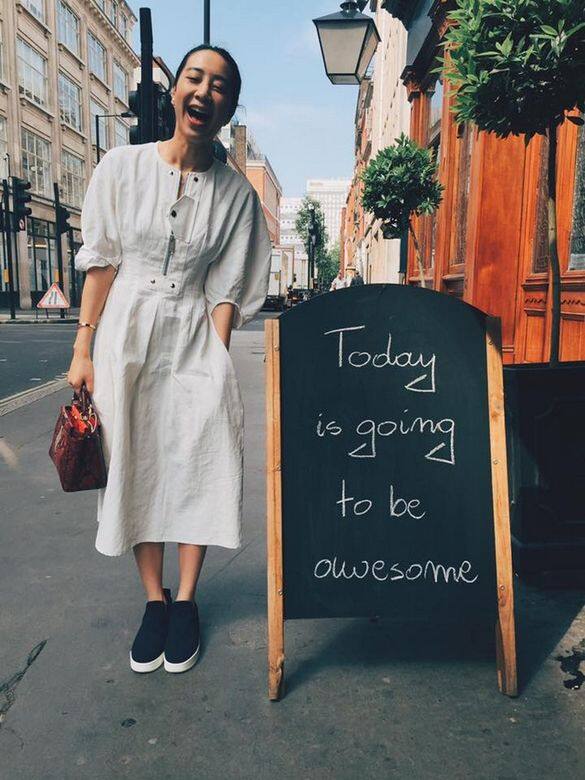 Today
is going
to be
awesome